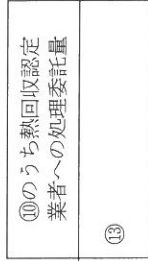 ⑩のうち熱回収認定
業者への処理委託量
⑬